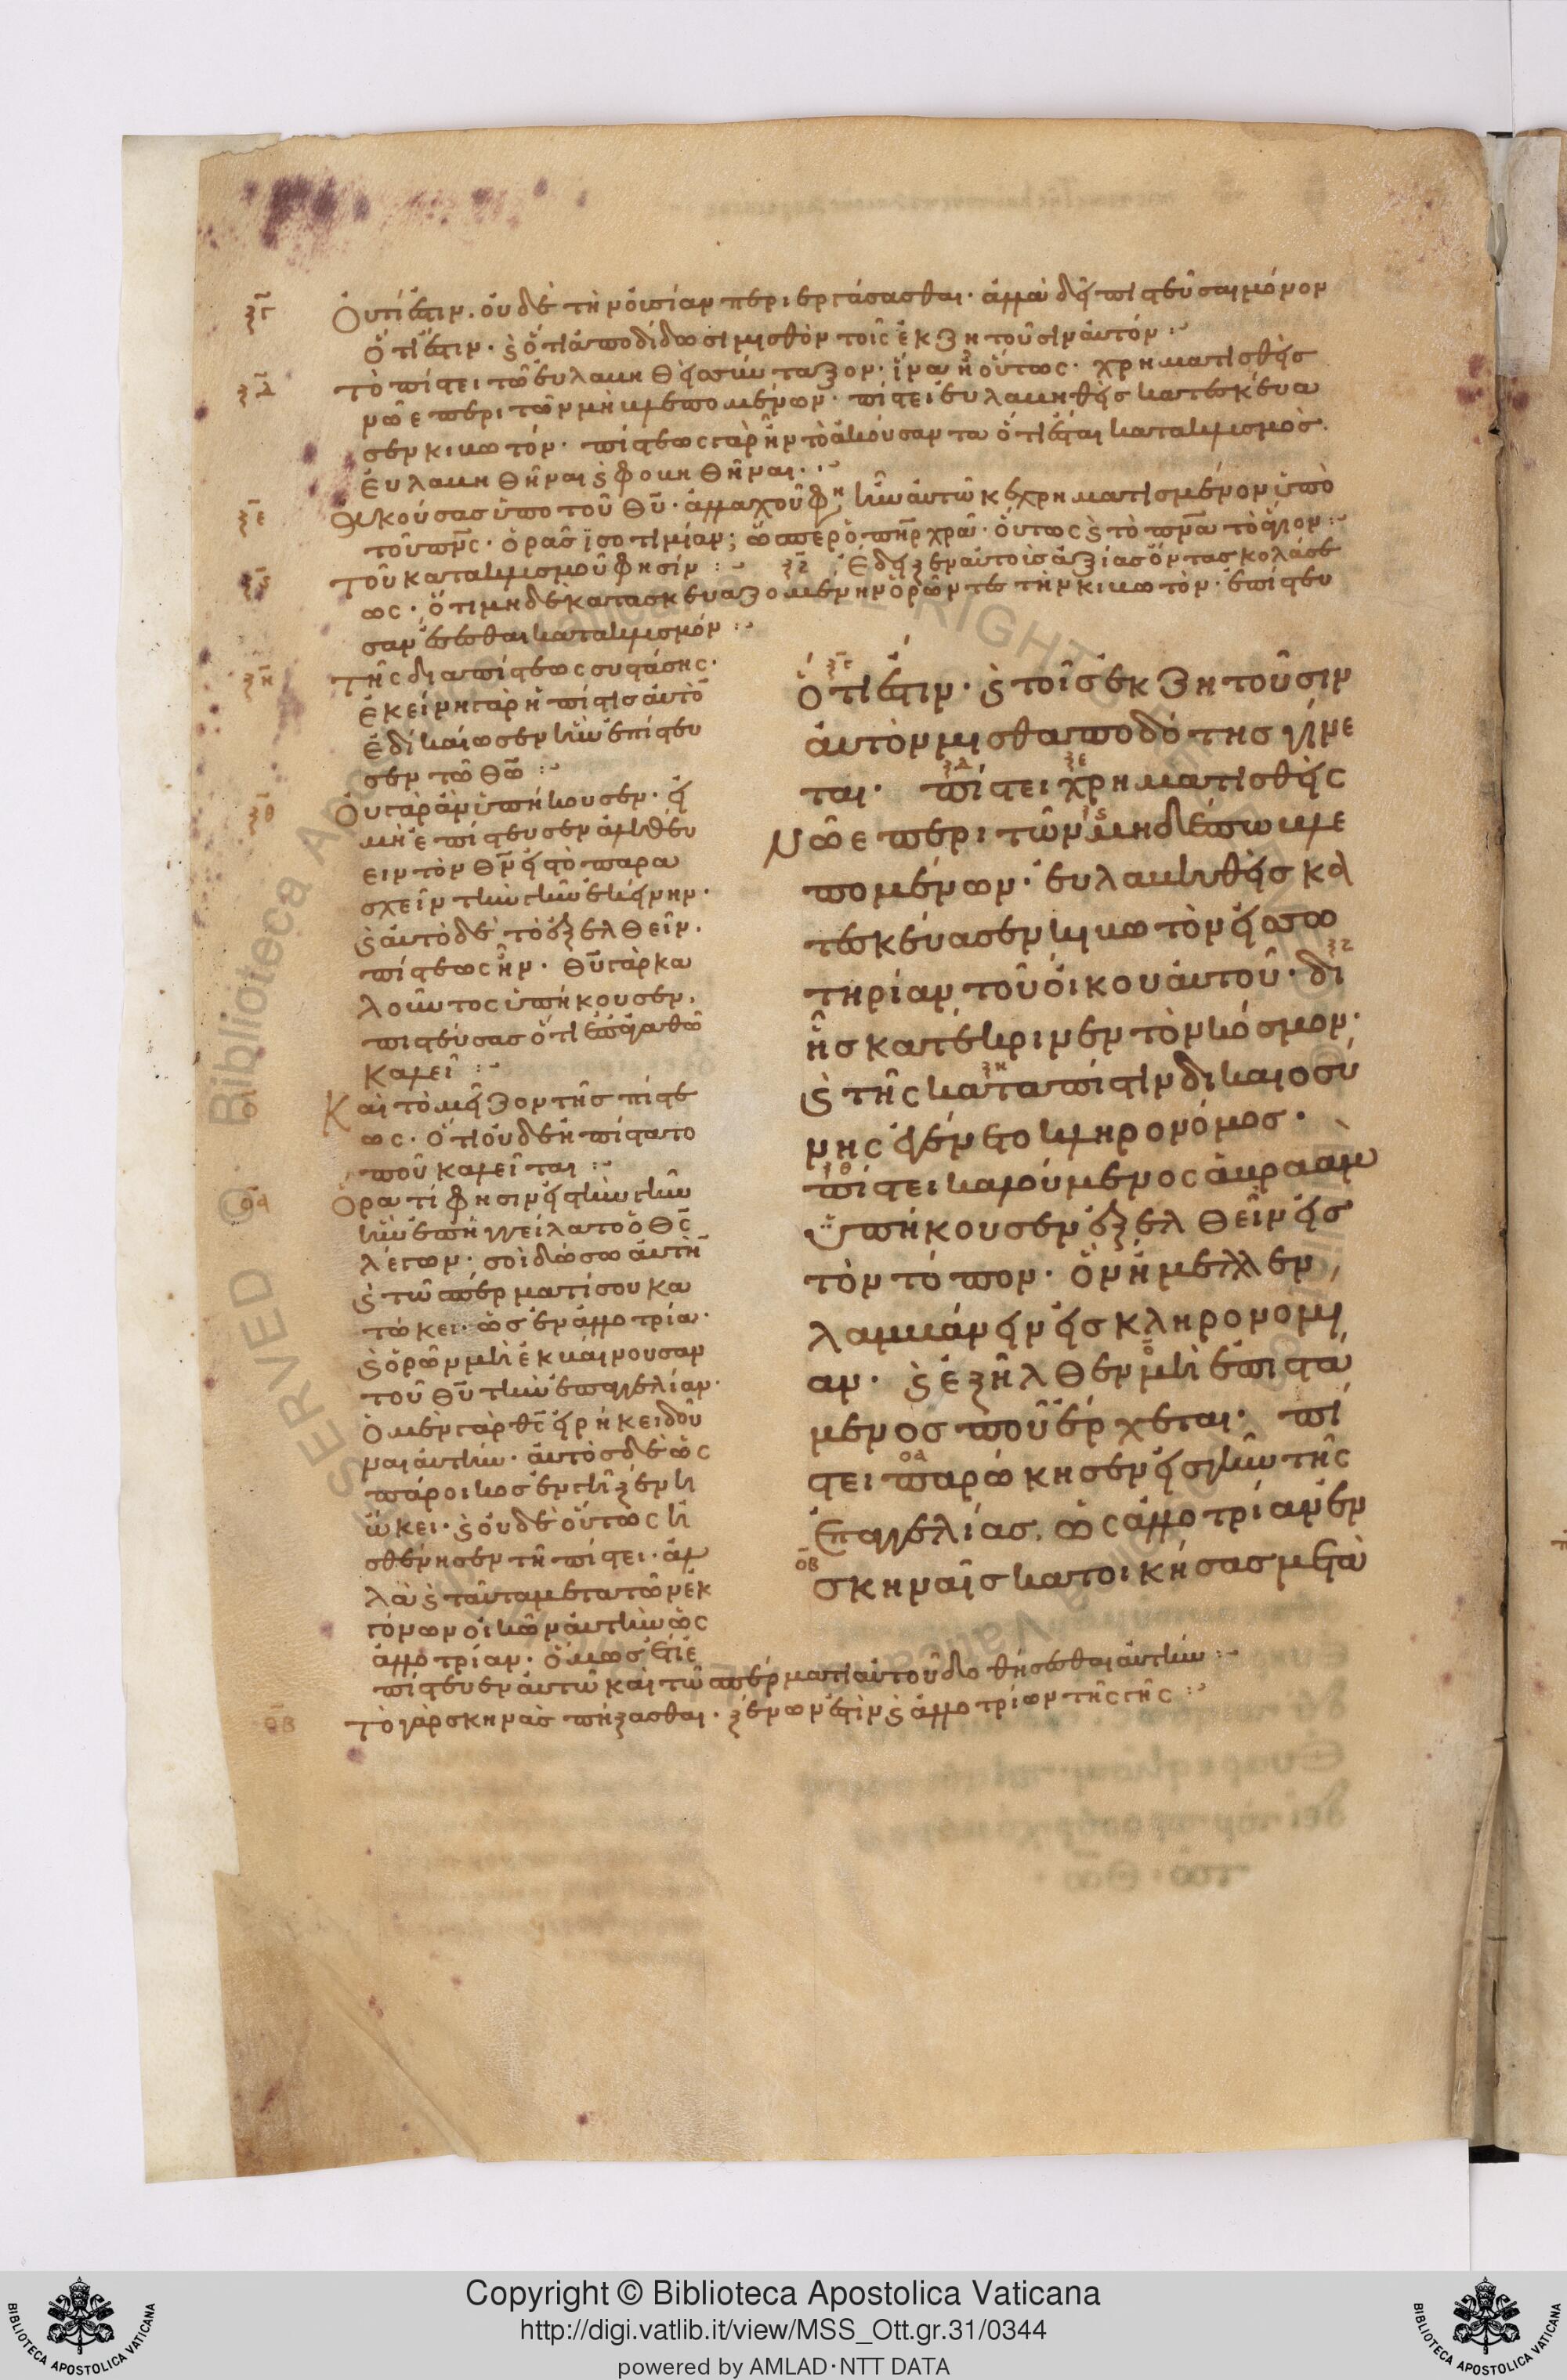 ξγ Οὐ τί ἐστιν. οὐδὲ τὴν οὐσίαν περιεργάσασθαι· ἀλλὰ δεῖ πιστεῦσαι μόνον
ὅτι ἔστιν· ϗ ὅτι ἀποδίδωσι μισθὸν τοῖς ἐκζητοῦσιν αὐτόν :~
ξδ τὸ πίστει τῷ εὐλαβηθεὶς συνταζον· ἵνα ᾖ οὕτως· χρηματισθεὶς
νῶε περι τῶν μὴ βλεπομένων· πίστει εὐλαβηθεὶς κατεσκεύα
σεν κιβωτόν· πίστεως γὰρ ἦν τὸ ἀκούσαντα ὅτι ἔσται κατακλυσμὸς.
εὐλαβηθῆναι ϗ φοβηθῆναι :~
ξε Ἀκούσας ὑπο τοῦ θυ· ἀλλαχοῦ φη ἦν αὐτῶ κεχρηματισμένον ὑπὸ
τοῦ πνς· ὁρᾶς ἰσοτιμίαν; ὥσπερ ὁ πηρ χρᾶ· οὕτως ϗ τὸ πνα τὸ ἅγιον :~
ξς τοῦ κατακλυσμοῦ φησίν :~ ξζ ἔδειξεν αὐτοὺς ἀξίας ὄντας κολάσε
ως· ὅτι μηδὲ κατασκευαζομένην ὁρῶντες τὴν κιβωτὸν· ἐπίστευ
σαν ἔσεσθαι κατακλυσμόν :~
ξη τῆς δια πίστεως συστάσης·
ἐκείνη γὰρ ἡ πίστις αὐτὸ
ἐδικαίωσεν ἣν ἐπίστευ
σεν τῶ θω :~
ξθ Οὐ γὰρ ἂν ὑπήκουσεν· εἰ
μὴ ἐπίστευσεν ἀληθεύ
ειν τὸν θν εἰς τὸ παρα
σχεῖν τὴν γῆν ἐκείνην·
ϗ αὐτὸ δὲ τὸ ἐξελθεῖν.
πίστεως ἦν· θυ γὰρ κα
λοῦντος ὑπήκουσεν.
πιστεύσας ὅτι ἐπ ἀγαθῶ
καλεῖ :~
ο Και τὸ μεῖζον τῆς πίστε
ως· ὅτι οὐδὲ ἠπίστατο
ποῦ καλεῖται :~
οα Ὅρα τί φησιν εἰς τὴν γῆν
ἣν ἐπηγγείλατο ὁ θς
λέγων· σοὶ δώσω αὐτὴν
ϗ τῶ σπέρματί σου κα
τώκει· ὡς ἐν ἀλλοτρία·
ϗ ὁρῶν μὴ ἐκβαίνουσαν
τοῦ θυ τὴν ἐπαγγελίαν·
ὁ μὲν γὰρ θς εἰρήκει δοῦ
ναι αὐτὴν· αὐτὸς δὲ ὡς
πάροικος ἐν γῆ ξένη
ὤκει· ϗ οὐδὲ οὕτως ἠ
σθένησεν τῆ πίστει· ἀλ
λὰ ϗ ταῦτα μετα τῶν ἐκ
γόνων οἰκῶν αὐτὴν ὡς
ἀλλοτρίαν· ὅμως ἔτι ἐ
πίστευεν αὐτῶ και τῶ σπέρματι αὐτοῦ δοθήσεσθαι αὐτὴν :~
οβ Τὸ γαρ σκηνὰς πήξασθαι· ξένων ἐστὶν ϗ ἀλλοτρίων τῆς γῆς :~
ὅτι ἔστιν· ϗ τοῖς ἐκζητοῦσιν
αὐτὸν μισθαποδότης γίνε
ται· πίστει χρηματισθεὶς
νῶε περι τῶν μηδέπω βλε
πομένων· εὐλαβηθεὶς κα
τεσκεύασεν κιβωτὸν εἰς σω
τηρίαν τοῦ οἴκου αὐτοῦ· δι
ἧς κατέκρινεν τὸν κόσμον·
ϗ τῆς κατα πίστιν δικαιοσύ
νης ἐγένετο κληρονόμος·
πίστει καλούμενος ἀβραὰμ
ὑπήκουσεν ἐξελθεῖν εἰς
τὸν τόπον· ὃν ἤμελλεν
λαμβάνειν εἰς κληρονομί
αν· ϗ ἐξῆλθεν μὴ ἐπιστά
μενος ποῦ ἔρχεται· πί
στει παρώκησεν εἰς γῆν τῆς
ἐπαγγελίας. ὡς ἀλλοτρίαν ἐν
σκηναῖς κατοικήσας μετὰ
Copyright © Biblioteca Apostolica Vaticana
http://digi.vatlib.it/view/MSS_Ott.gr.31/0344
powered by AMLAD·NTT DATA
BIBLIOTECA APOSTOLICA VATICANA
BIBLIOTECA APOSTOLICA VATICANA